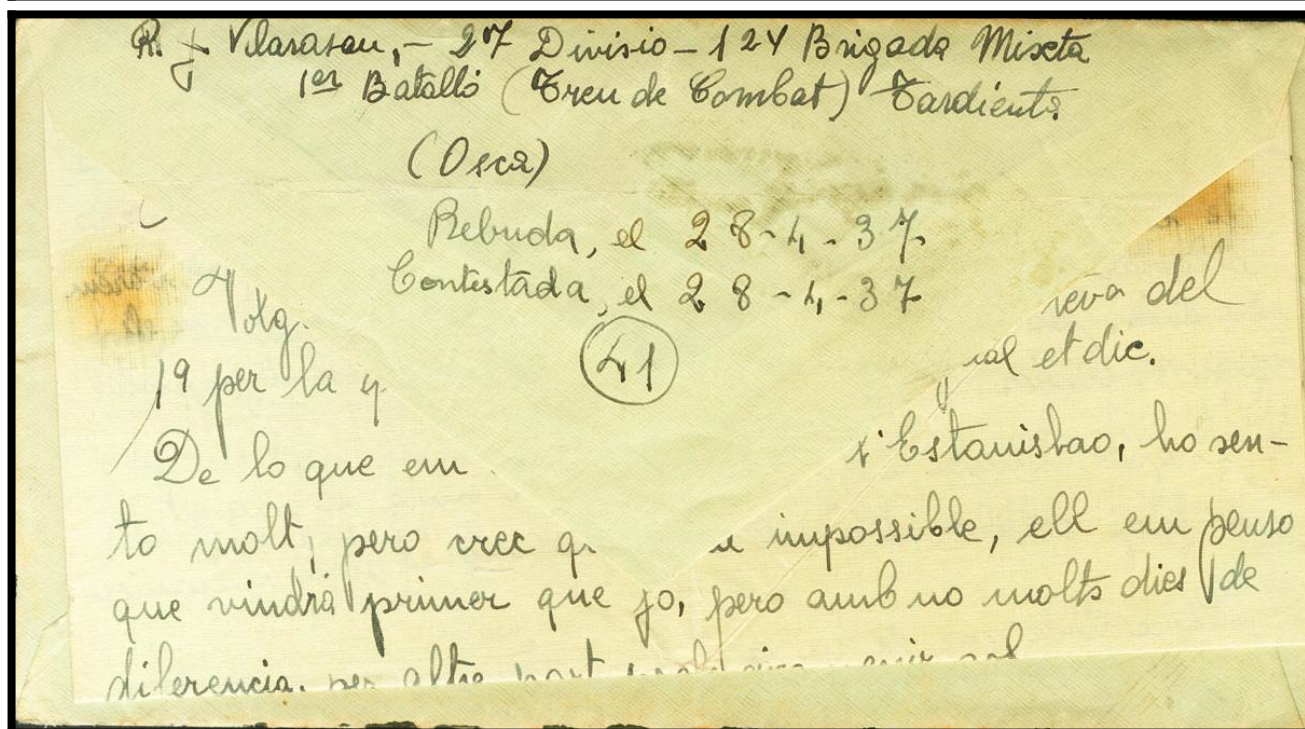 R. J. Vilarasau, - 27 Divisio - 124 Brigada Mixta
1er Batalló (Treu de Combat) Tardienta
(Osca)
Rebuda, el 28-4-37
Contestada, el 28-4-37
41
del
19 per la
et dic.
De lo que em
Estanislao, ho sen-
to molt, pero crec
impossible, ell em penso
que vindrá primer que jo, pero amb no molts dies de
diferencia, per altre part